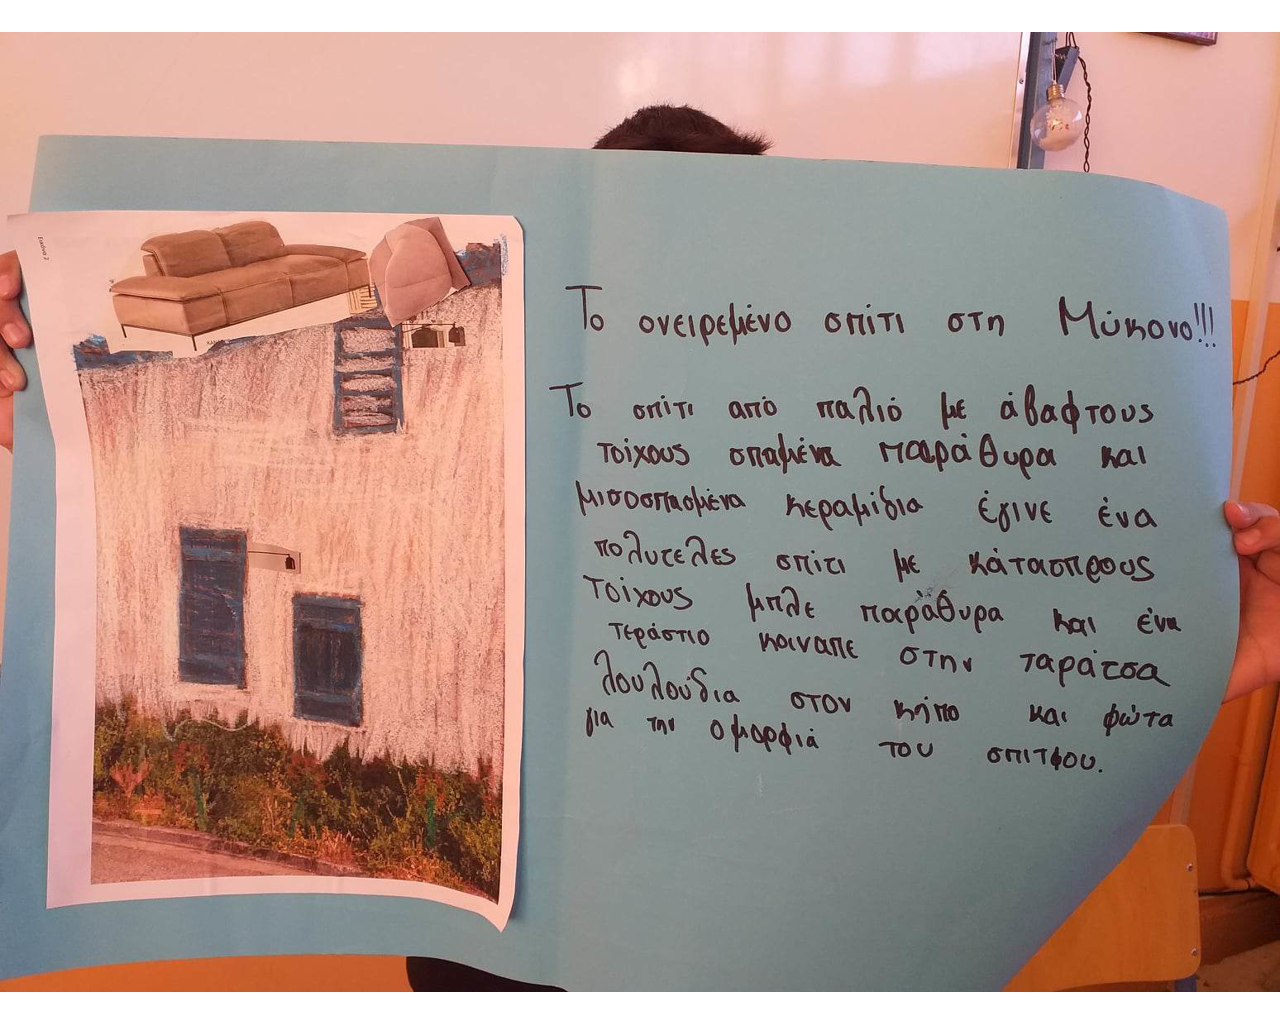 Εικόνα 2
Το ονειρεμένο σπίτι στη Μύκονο!!!
Το σπίτι από παλιό με άβαφτους
τοίχους σπαμένα παράθυρα και
μισοσπασμένα κεραμίδια έγινε ένα
πολυτελες σπίτι με κάτασπρους
τοίχους μπλε παράθυρα και ένα
τεράστιο κοιναπε στην ταράτσα
λουλούδια στον κήπο και φώτα
για την ομορφιά του